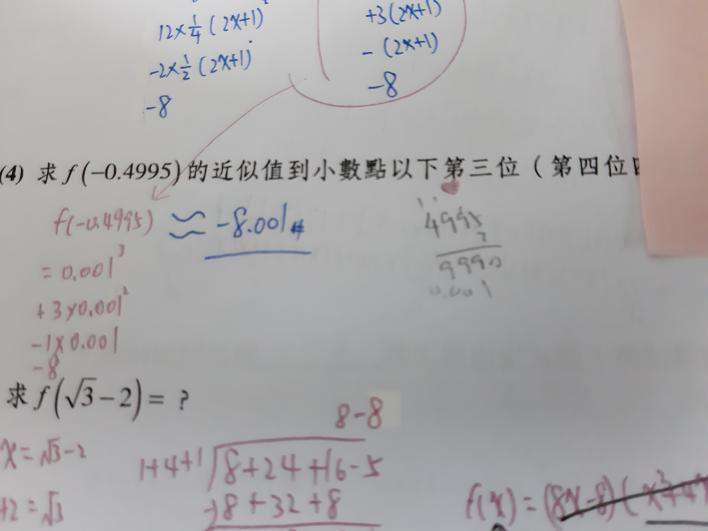 12×1/4(2x+1)²
+3(2x+1)
-2×1/2(2x+1)
-(2x+1)
-8
-8
(4) 求 f(-0.4995) 的近似值到小數點以下第三位(第四位
f(-0.4995) ≈ -8.001#
= 0.001³
+3×0.001²
-1×0.001
-8
4995
2
9990
0.001
求 f(√3-2) = ?
8-8
x=√3-2
1+4+1
8+24+16-5
+2=√3
8+32+8
f(x)=(8x-8)(